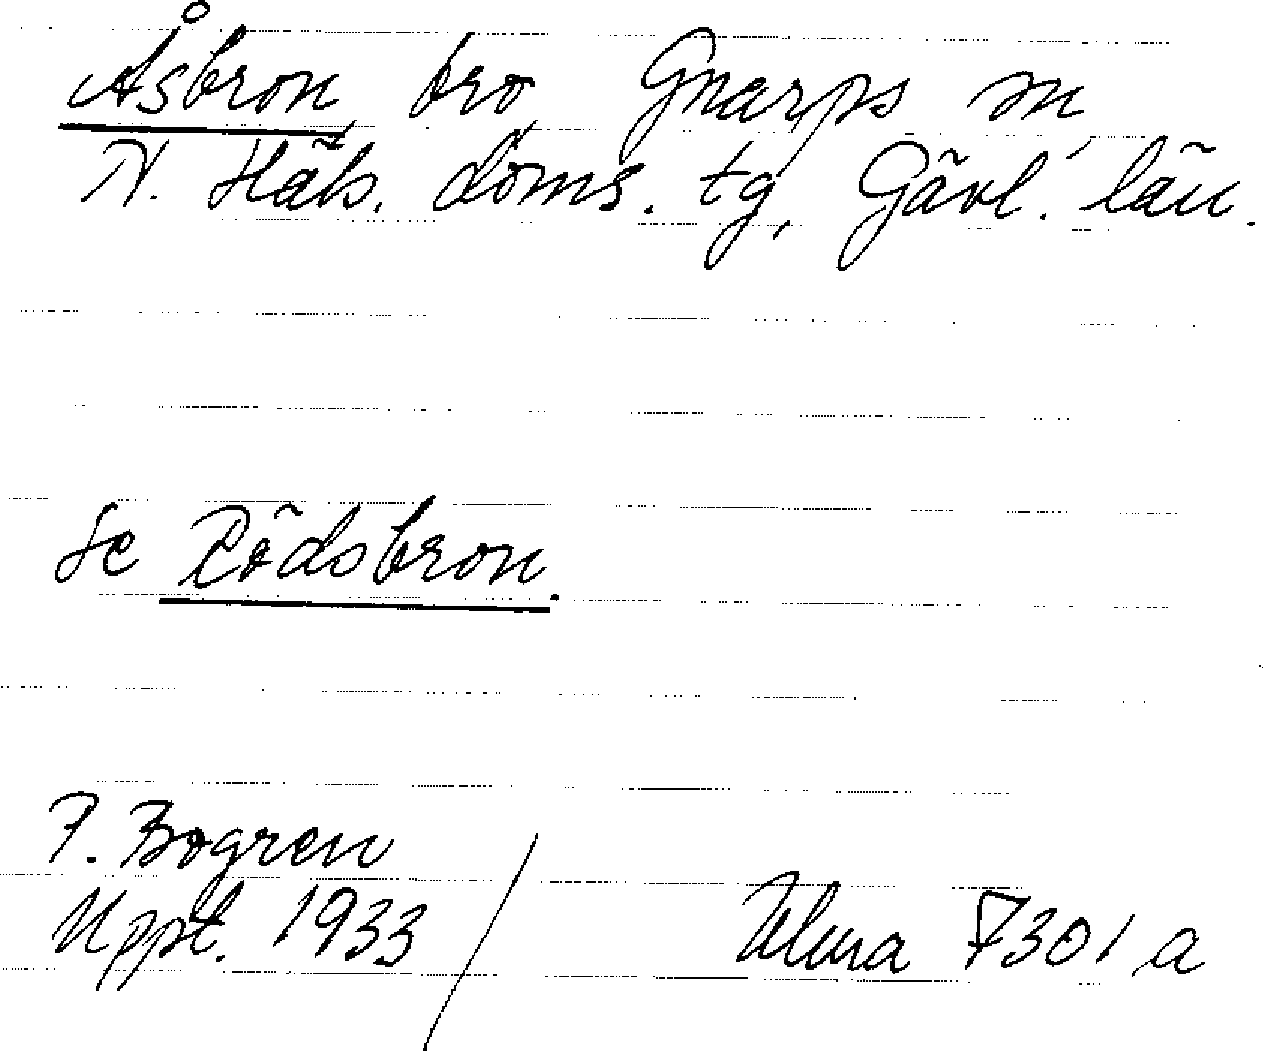 Åsbron, bro, Gnarps sn
N. Häls. doms. tg, Gävl. län.
Se Rödsbron.
P. Bogren
Uppt. 1933 / Ulma 7301 a